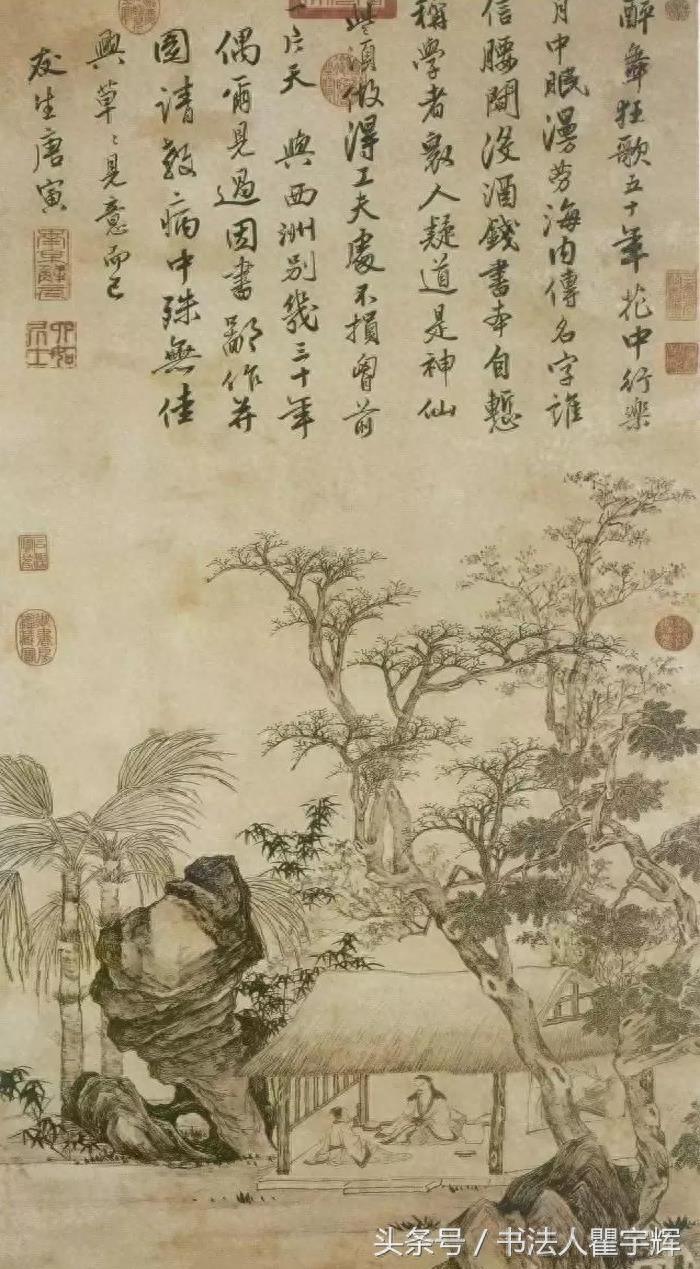 醉舞狂歌五十年花中行樂
月中眠漫勞海内傳名字誰
信腰間沒酒錢書本自慙
稱學者眾人疑道是神仙
些須做得工夫處不損胷前
一片天 與西洲別幾三十年
偶爾見過因書鄙作并
圖請教病中殊無佳
興草〻見意而已
友生唐寅
南京解元
六如居士
头条号 / 书法人瞿宇辉